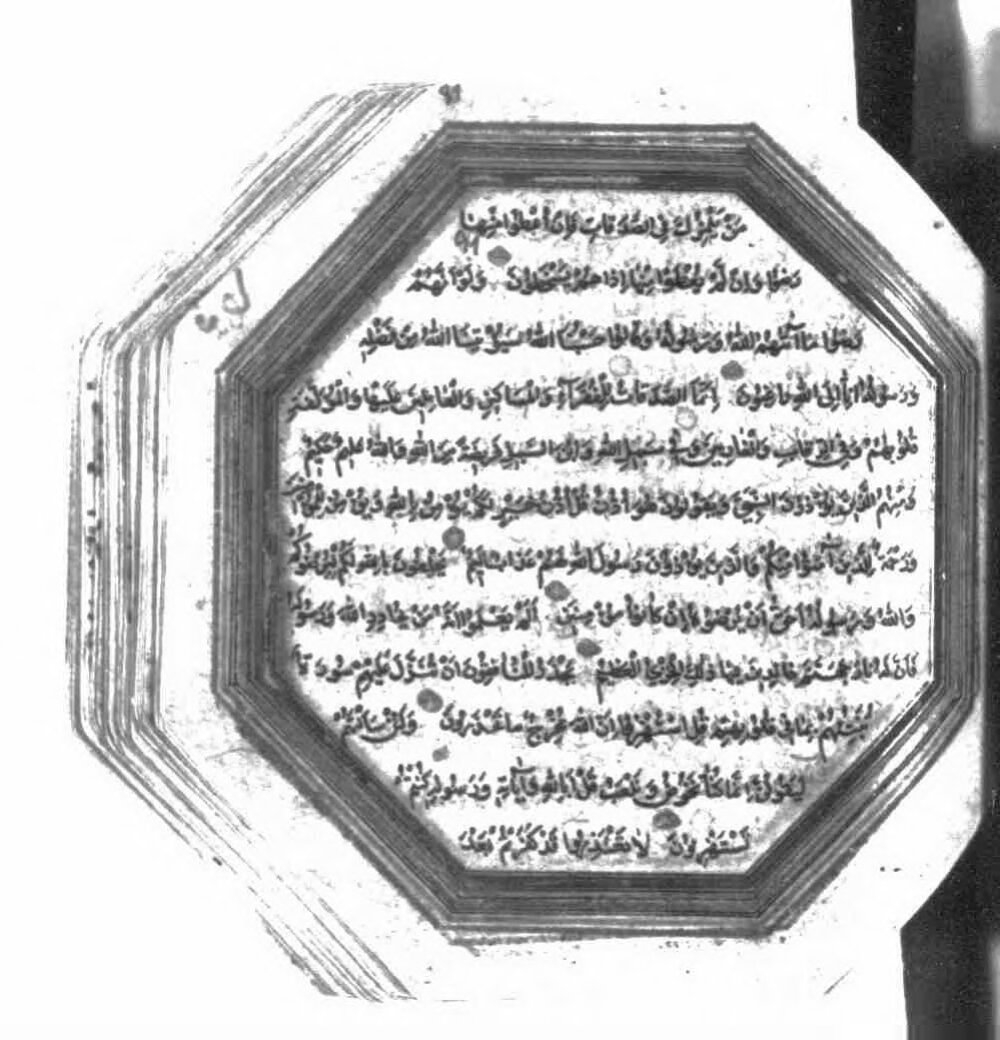 مَنْ يَلْمِزُكَ فِي الصَّدَقَاتِ فَإِنْ أُعْطُوا مِنْهَا
رَضُوا وَإِنْ لَمْ يُعْطَوْا مِنْهَا إِذَا هُمْ يَسْخَطُونَ وَلَوْ أَنَّهُمْ
رَضُوا مَا آتَاهُمُ اللهُ وَرَسُولُهُ وَقَالُوا حَسْبُنَا اللهُ سَيُؤْتِينَا اللهُ مِنْ فَضْلِهِ
وَرَسُولُهُ إِنَّا إِلَى اللهِ رَاغِبُونَ إِنَّمَا الصَّدَقَاتُ لِلْفُقَرَآءِ وَالْمَسَاكِينِ وَالْعَامِلِينَ عَلَيْهَا وَالْمُؤَلَّفَةِ
قُلُوبُهُمْ وَفِي الرِّقَابِ وَالْغَارِمِينَ وَفِي سَبِيلِ اللهِ وَابْنِ السَّبِيلِ فَرِيضَةً مِنَ اللهِ وَاللهُ عَلِيمٌ حَكِيمٌ
وَمِنْهُمُ الَّذِينَ يُؤْذُونَ النَّبِيَّ وَيَقُولُونَ هُوَ أُذُنٌ قُلْ أُذُنُ خَيْرٍ لَكُمْ يُؤْمِنُ بِاللهِ وَيُؤْمِنُ لِلْمُؤْمِنِينَ
وَرَحْمَةٌ لِلَّذِينَ آمَنُوا مِنْكُمْ وَالَّذِينَ يُؤْذُونَ رَسُولَ اللهِ لَهُمْ عَذَابٌ أَلِيمٌ يَحْلِفُونَ بِاللهِ لَكُمْ لِيُرْضُوكُمْ
وَاللهُ وَرَسُولُهُ أَحَقُّ أَنْ يُرْضُوهُ إِنْ كَانُوا مُؤْمِنِينَ أَلَمْ يَعْلَمُوا أَنَّهُ مَنْ يُحَادِدِ اللهَ وَرَسُولَهُ
فَأَنَّ لَهُ نَارَ جَهَنَّمَ خَالِدًا فِيهَا ذَلِكَ الْخِزْيُ الْعَظِيمُ يَحْذَرُ الْمُنَافِقُونَ أَنْ تُنَزَّلَ عَلَيْهِمْ سُورَةٌ
تُنَبِّئُهُمْ بِمَا فِي قُلُوبِهِمْ قُلِ اسْتَهْزِئُوا إِنَّ اللهَ مُخْرِجٌ مَا تَحْذَرُونَ وَلَئِنْ سَأَلْتَهُمْ
لَيَقُولُنَّ إِنَّمَا كُنَّا نَخُوضُ وَنَلْعَبُ قُلْ أَبِاللهِ وَآيَاتِهِ وَرَسُولِهِ كُنْتُمْ
تَسْتَهْزِئُونَ لَا تَعْتَذِرُوا قَدْ كَفَرْتُمْ بَعْدَ